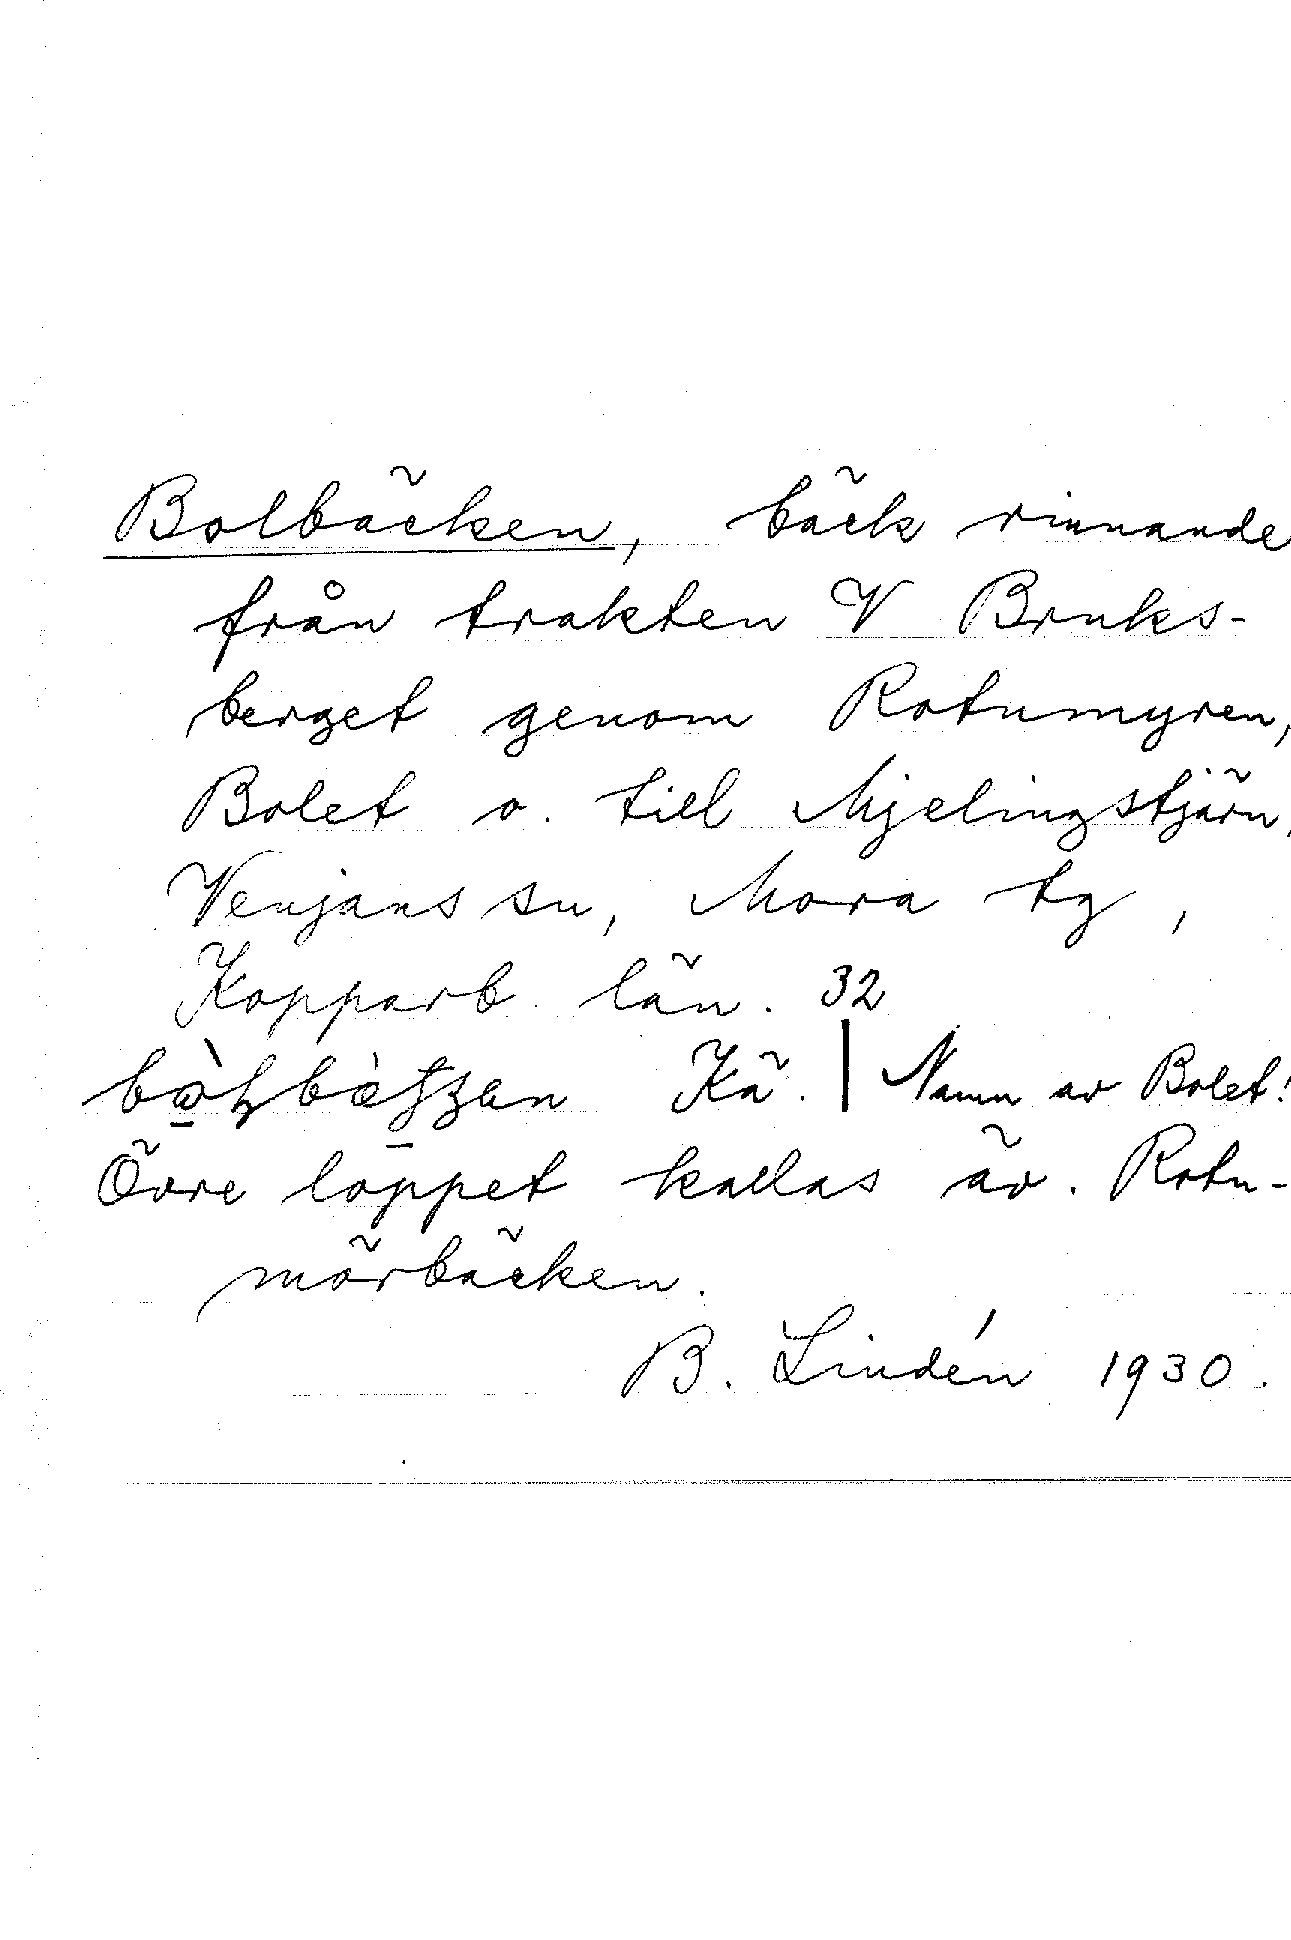 Bolbäcken, bäck rinnande
från trakten V Bruks-
berget genom Rotnmyren,
Bolet o. till Mjelingstjärn,
Venjans sn, Mora tg,
Kopparb. län. 32
Kä. | Namn av Bolet!
Övre loppet kallas äv. Rotn-
mörbäcken.
B. Lindén 1930.